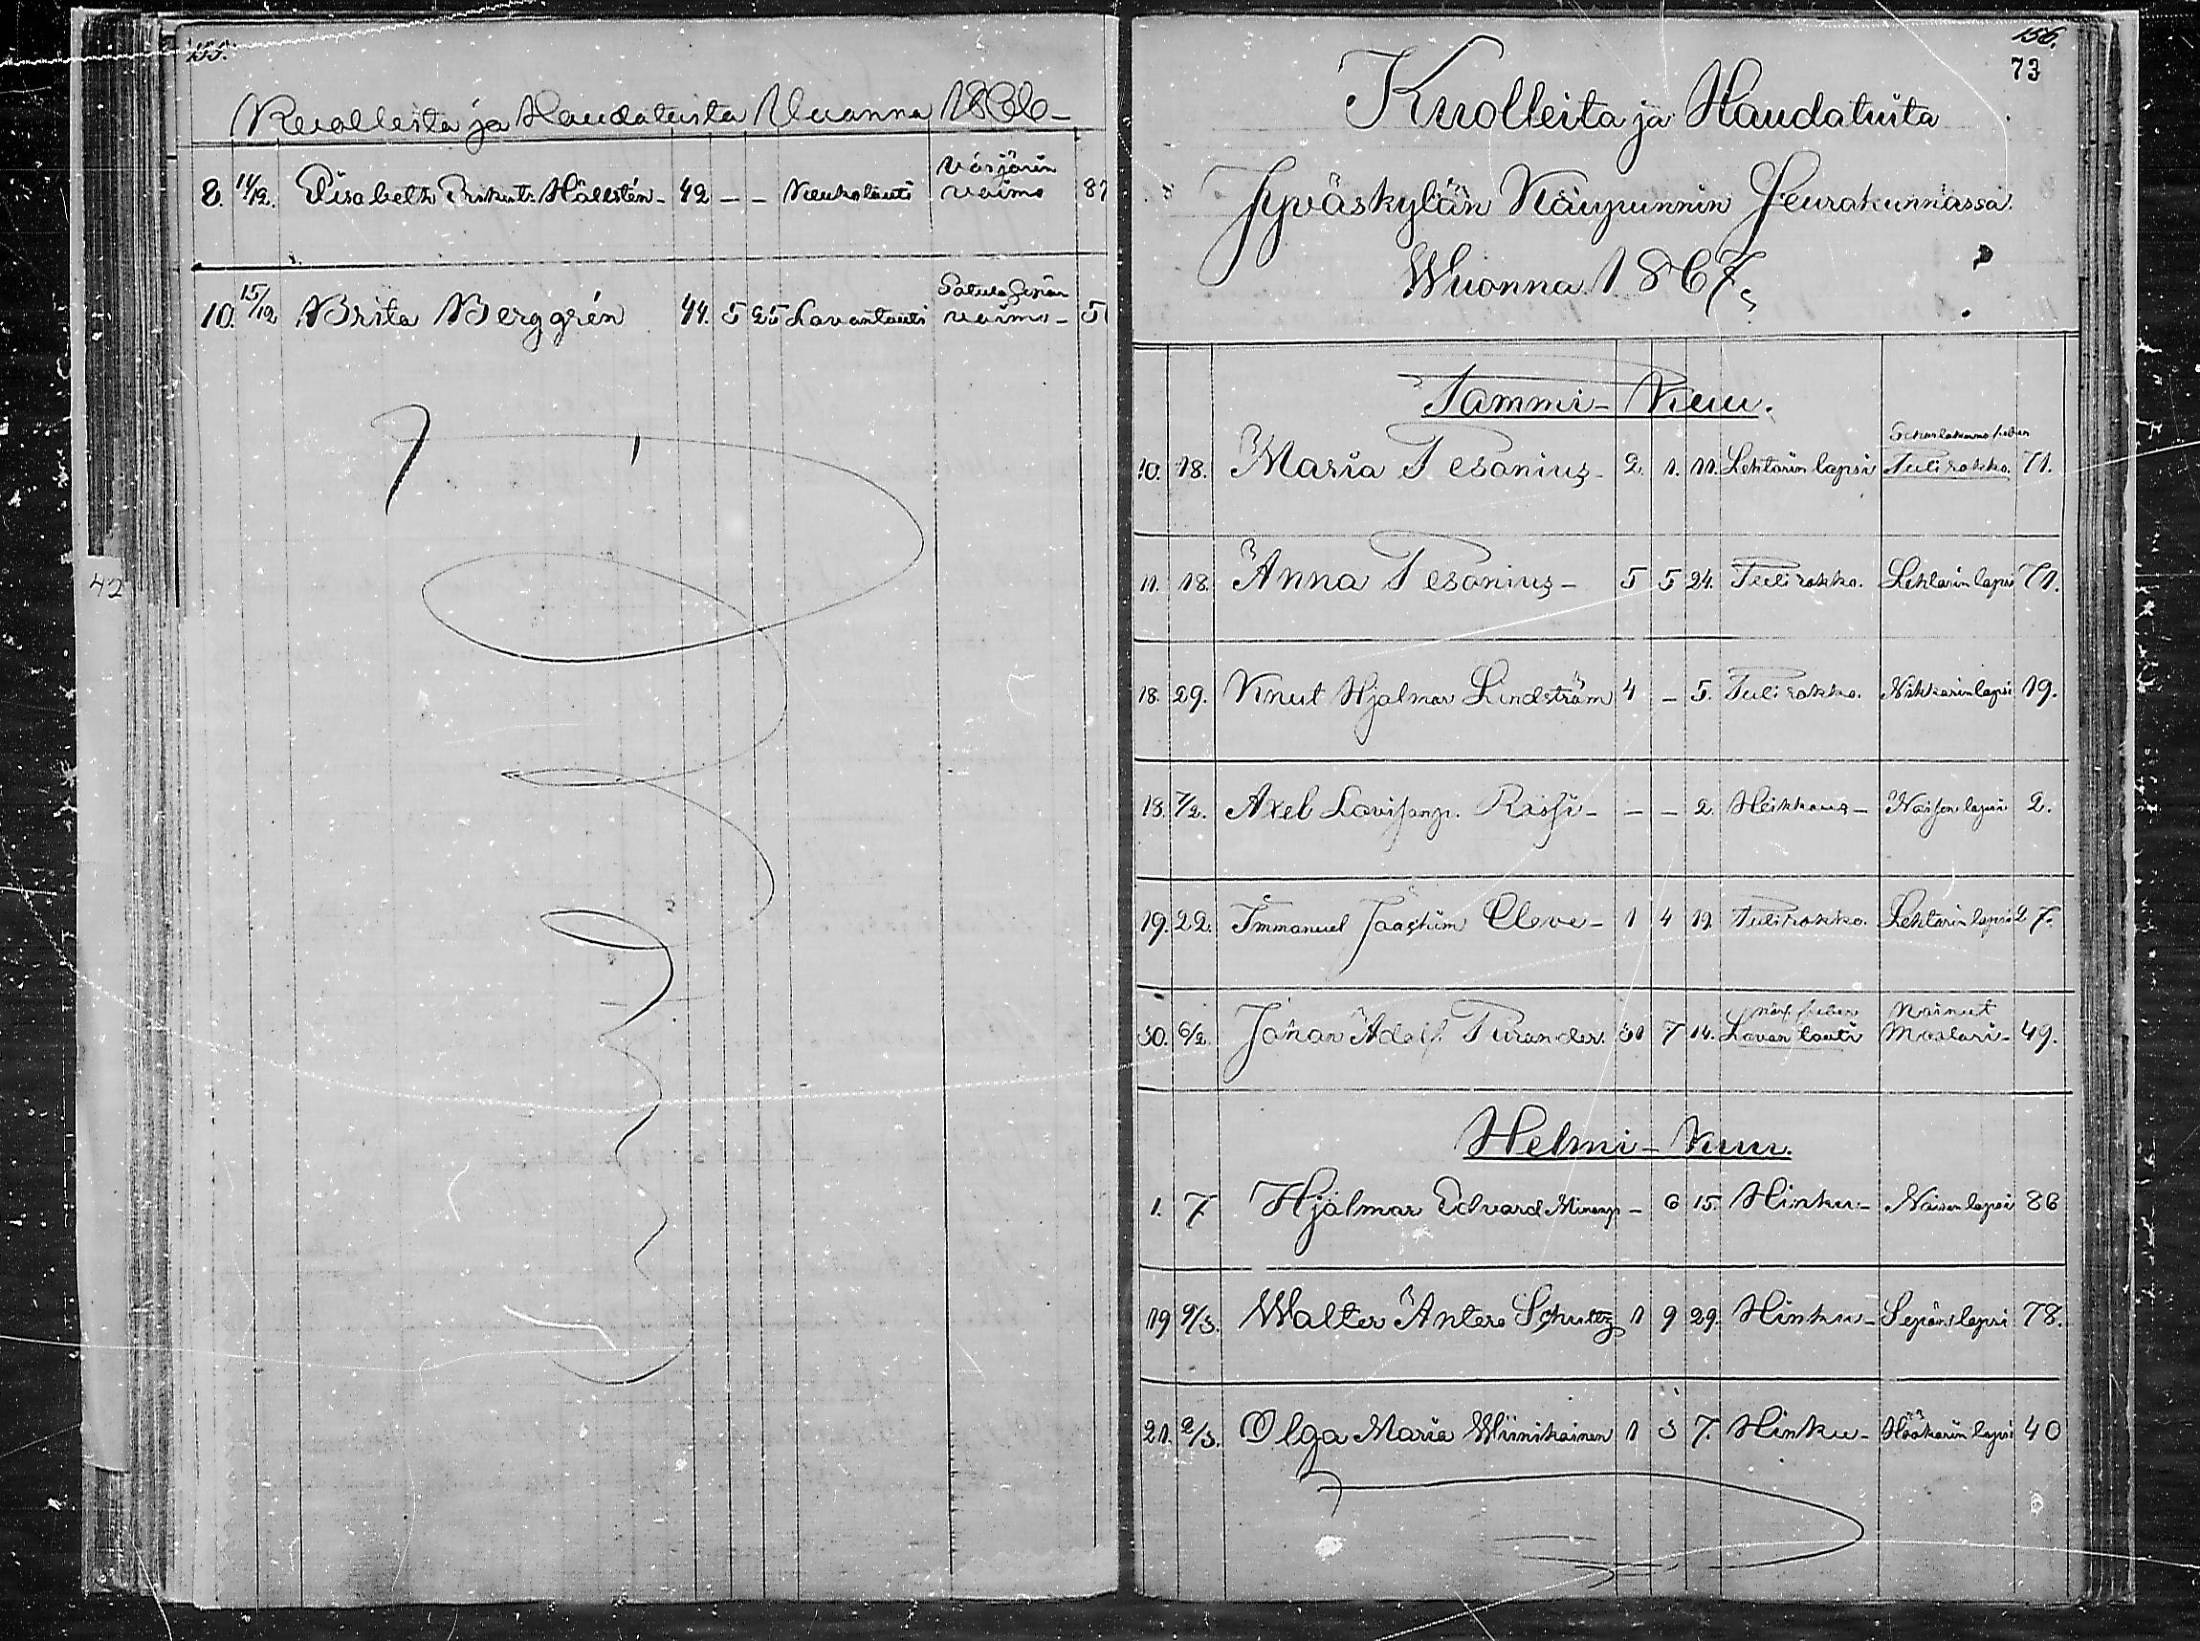 155.
Kuolleista ja Haudatuista Vuonna 1866
8. 14/12. Elisabeth Hällstén - 42 - - Keuhkotauti Värjärin vaimo 87
10. 15/12 Brita Berggrén 44. 5 25 Lavantauti Satula Sepän vaimo - 5
42
156.
73
Kuolleita ja Haudatuita
Jyväskylän Kaupunnin Seurakunnassa
Wuonna 1867.
Tammi-Kuu.
10. 18. Maria Fesonius - 2. 1. 11. Lehtorin lapsi Scharlakans feber Tulirokko. 71.
11. 18. Anna Fesonius - 5 5 24. Tulirokko. Lehtorin lapsi 71.
18. 29. Knut Hjalmar Lindström 4 - 5. Tulirokko. Nikkarin lapsi 19.
18. 7/2. Axel Lovisanp. Rossi - - - 2. Heikkous - Naisen lapsi 2.
19. 22. Immanuel Joachim Cleve - 1 4 19. Tulirokko. Lehtorin lapsi 27.
30. 6/2. Johan Adolf Turander. 31 7 14. Nerf feber Lavantauti Nainut Maalari - 49.
Helmi-Kuu.
1. 7 Hjalmar Edvard Minanp - 6 15. Hinku - Naisen lapsi 86
19 9/3. Walter Antero Schultz 1 9 29. Hinku - Sepän lapsi 78.
21. 2/3. Olga Maria Wiinikainen 1 3 7. Hinku - Hookarin lapsi 40